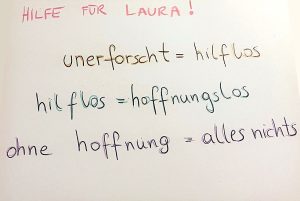 HILFE FÜR LAURA!
unerforscht = hilflos
hilflos = hoffnungslos
ohne hoffnung = alles nichts